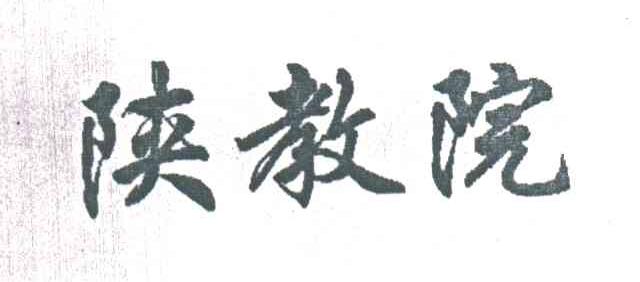 陕教院